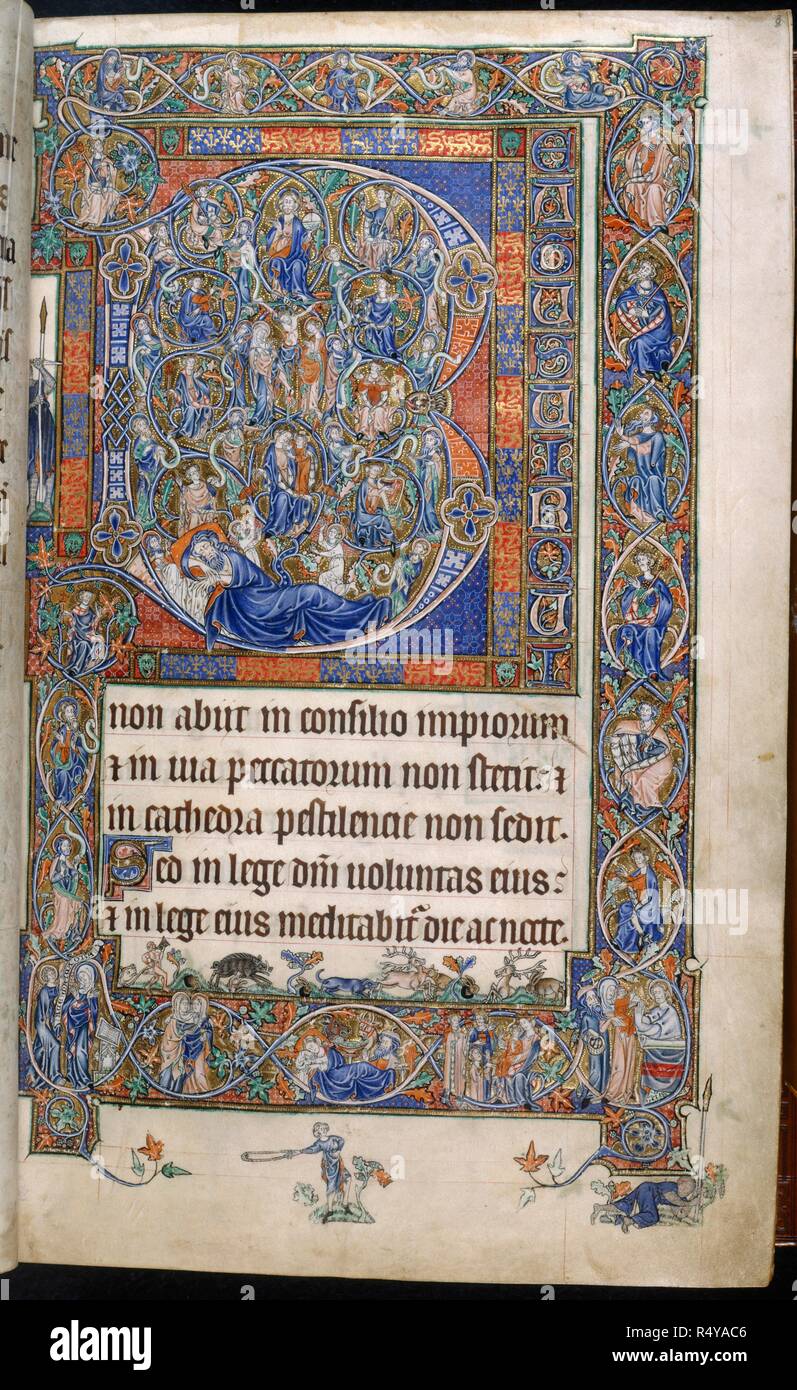 8
B
EATUSUIRQUI
non abiit in consilio impiorum
⁊ in uia peccatorum non stetit: ⁊
in cathedra pestilencie non sedit.
Sed in lege dñi uoluntas eius:
⁊ in lege eius meditabit᷑ die ac nocte.
alamy
Image ID: R4YAC6
www.alamy.com